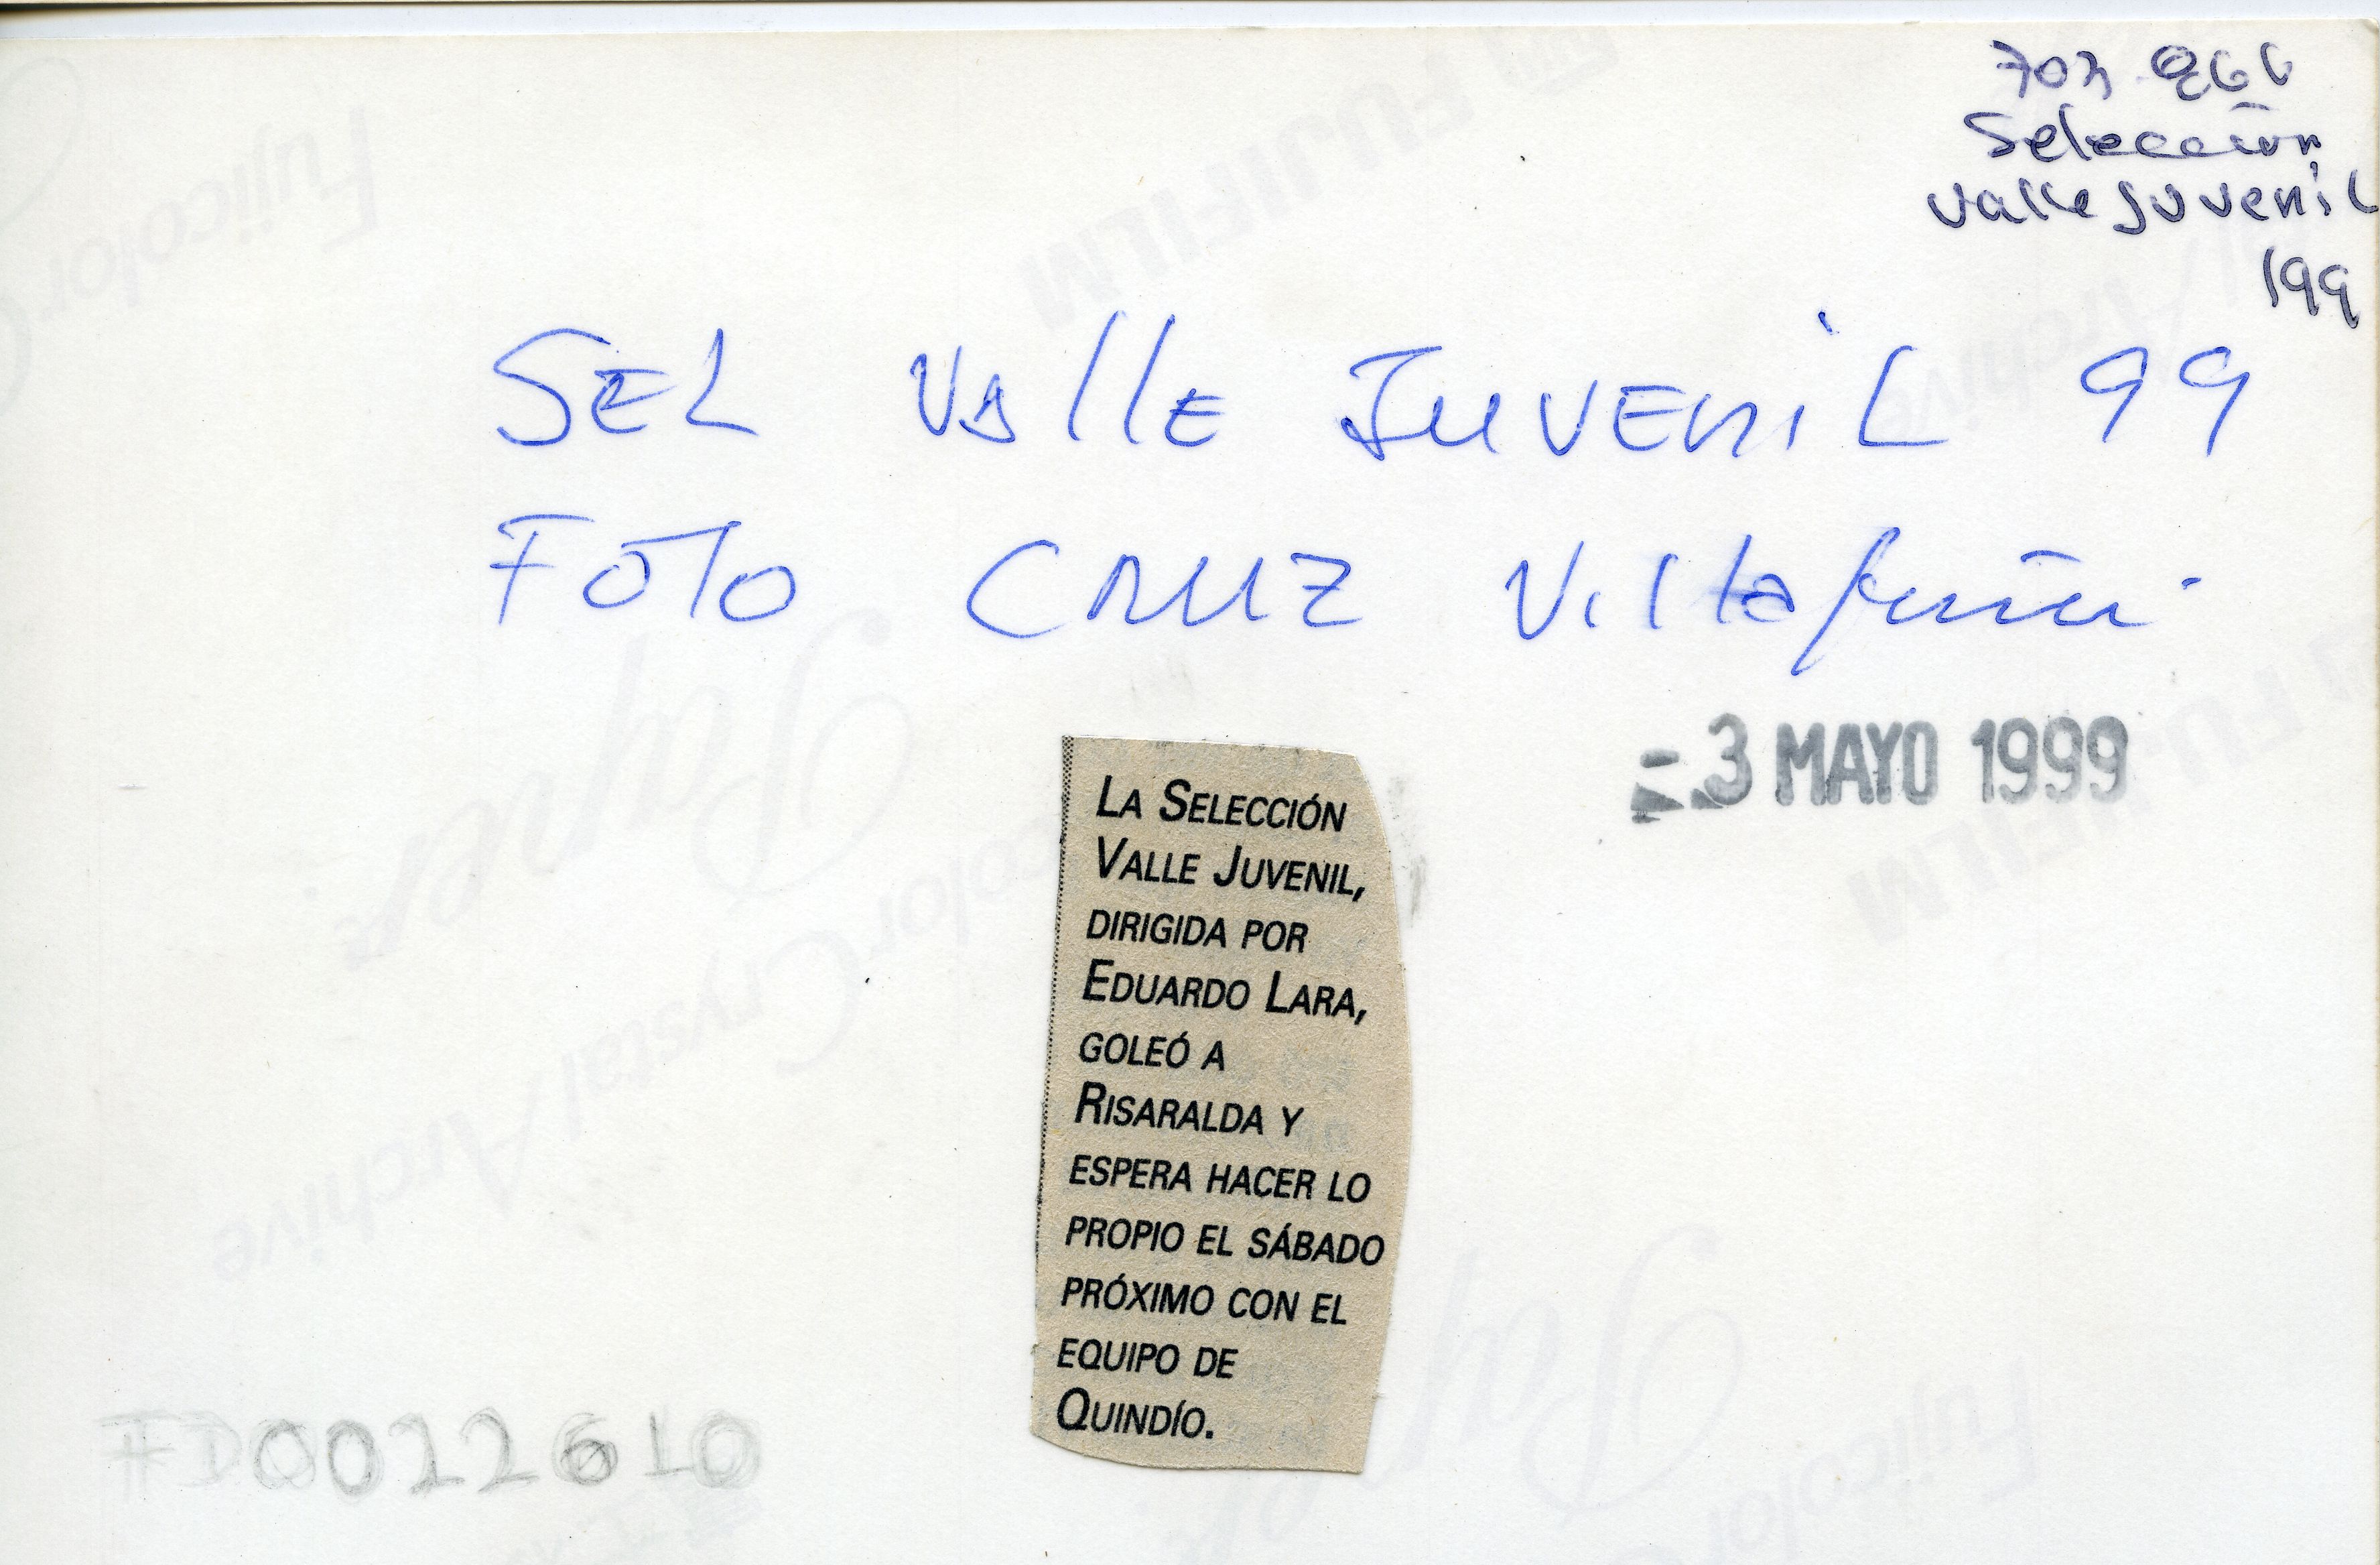 Selección
Valle Juvenil
199
SEL VALLE JUVENIL 99
FOTO CRUZ
- 3 MAYO 1999
LA SELECCIÓN
VALLE JUVENIL,
DIRIGIDA POR
EDUARDO LARA,
GOLEÓ A
RISARALDA Y
ESPERA HACER LO
PROPIO EL SÁBADO
PRÓXIMO CON EL
EQUIPO DE
QUINDÍO.
FD0022610
Fujicolor
FUJIFILM
Fujicolor Crystal Archive
Paper